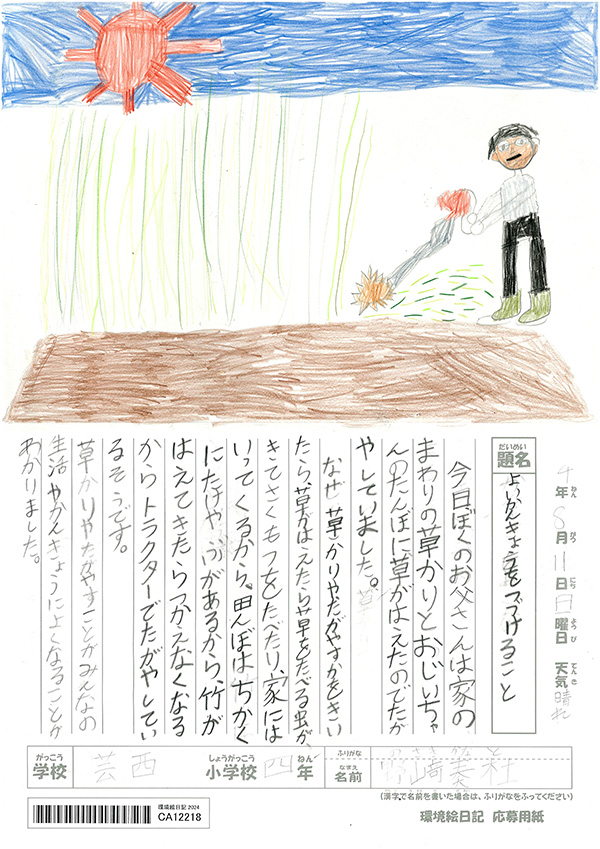 年 8月11日日曜日 天気晴れ
ねん がつ にち ようび てんき
だいめい
題名
よいかんきょうをつづけること
今日ぼくのお父さんは家の
まわりの草かりとおじいちゃ
んのたんぼに草がはえたのでたが
やしていました。
なぜ草かりやたがやすかをきい
たら、草がはえたら草をたべる虫が、
きてさくもつをたべたり、家には
いってくるから。田んぼはちかく
にたけやぶがあるから、竹が
はえてきたらつかえなくなる
からトラクターでたがやしてい
るそうです。
草かりやたがやすことがみんなの
生活やかんきょうによくなることが
わかりました。
がっこう
学校
芸西
しょうがっこう
小学校
四年
ねん
ふりがな
なまえ
名前
(漢字で名前を書いた場合は、ふりがなをふってください)
環境絵日記2024
CA12218
環境絵日記 応募用紙